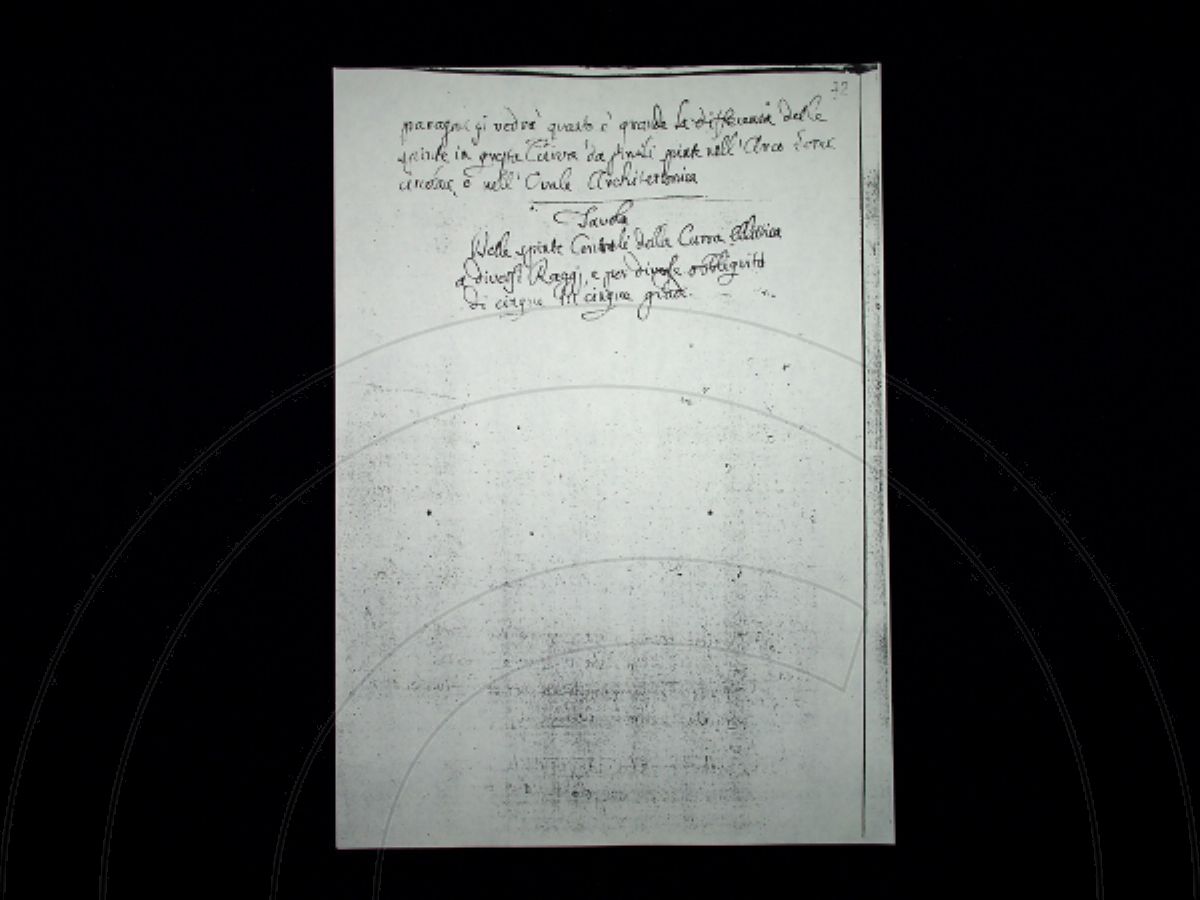 72
paragoni si vedrà quanto è grande la differenza delle
spinte in questa Curva da simili spinte nell' Arco
circolare, o nell' Ovale Architettonica
Tavola
Delle spinte Centrali della Curva Ellittica
a diversi Raggi, e per diverse obbliquità
di cinque in cinque gradi.